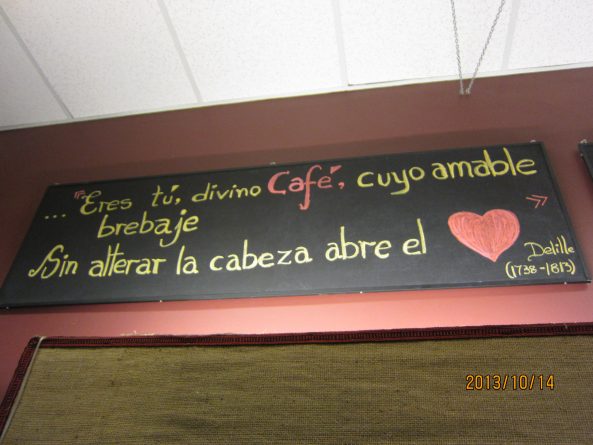 ... "Eres tú, divino Café, cuyo amable
brebaje
Sin alterar la cabeza abre el »
Delille
(1738-1813)
2013/10/14